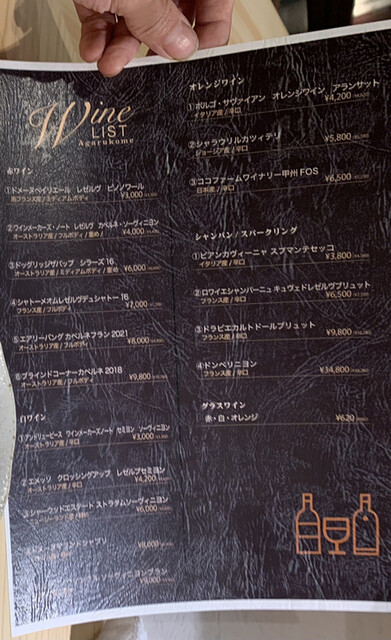 Wine
LIST
Agarukome
赤ワイン
①ドメーヌペイリエール　レゼルヴ　ピノノワール
南フランス産 / ミディアムボディ ¥3,000
②ワインメーカーズ・ノート　レゼルヴ　カベルネ・ソーヴィニヨン
オーストラリア産 / フルボディ / 重め ¥4,000
③ドッグリッジザパップ　シラーズ 16
オーストラリア産 / ミディアムボディ / 重め ¥6,000
④シャトーメオムレゼルヴデュシャトー 16
フランス産 / フルボディ ¥7,000
⑤エアリーバンク カベルネフラン 2021
オーストラリア産 / フルボディ ¥8,000
⑥ブラインドコーナーカベルネ 2018
オーストラリア産 / フルボディ ¥9,800
白ワイン
①アンドリューピース　ワインメーカーズノート　セミヨン　ソーヴィニヨン
オーストラリア産 / 辛口 ¥3,000
②エメッソ　クロッシングアップ　レゼルブセミヨン
オーストラリア産 / 辛口 ¥4,200
③シャーウッドエステート ストラタムソーヴィニヨン
¥6,000
¥8,000
¥9,000
オレンジワイン
①ボルゴ・サヴァイアン　オレンジワイン　アランサット
イタリア産 / 辛口 ¥4,200
②シャラウリルカツィテリ
ジョージア産 / 辛口 ¥5,800
③ココファームワイナリー甲州 FOS
日本産 / 辛口 ¥6,500
シャンパン / スパークリング
①ビアンカヴィーニャ　スプマンテセッコ
イタリア産 / 辛口 ¥3,800
②ロワイエシャンパーニュ キュヴェドレゼルヴブリュット
フランス産 / 辛口 ¥6,500
③ドラピエカルトドールブリュット
フランス産 / 辛口 ¥9,800
④ドンペリニヨン
フランス産 / 辛口 ¥34,800
グラスワイン
赤・白・オレンジ ¥620